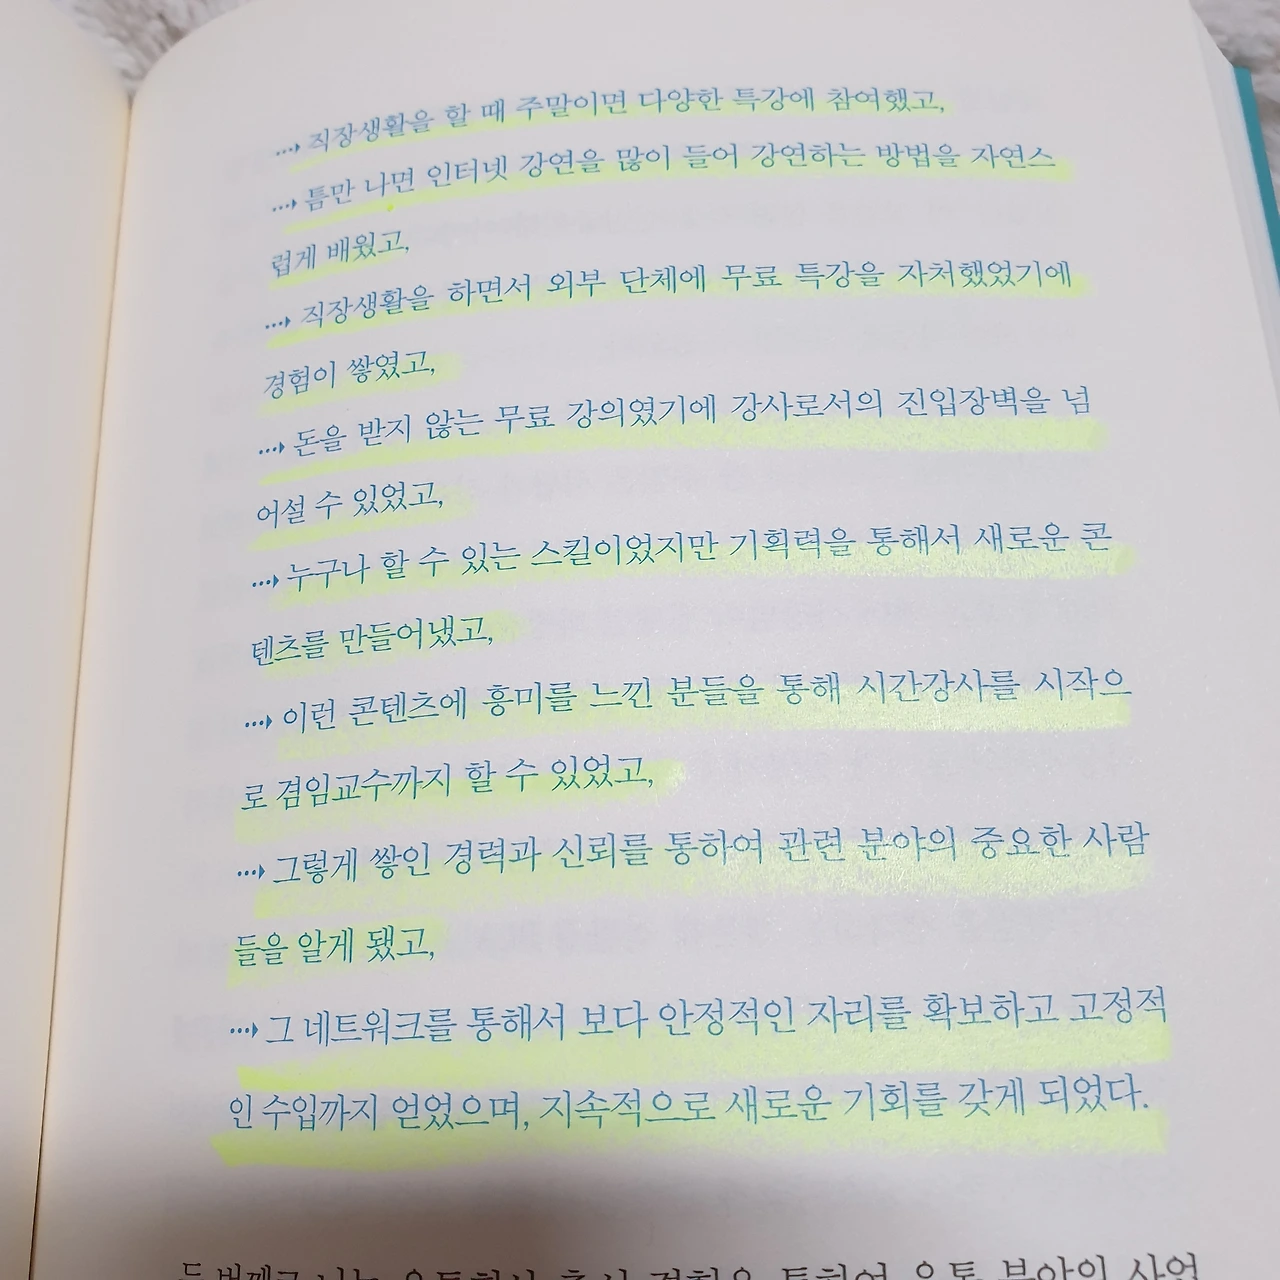 …▸ 직장생활을 할 때 주말이면 다양한 특강에 참여했고,
…▸ 틈만 나면 인터넷 강연을 많이 들어 강연하는 방법을 자연스
럽게 배웠고,
…▸ 직장생활을 하면서 외부 단체에 무료 특강을 자처했었기에
경험이 쌓였고,
…▸ 돈을 받지 않는 무료 강의였기에 강사로서의 진입장벽을 넘
어설 수 있었고,
…▸ 누구나 할 수 있는 스킬이었지만 기획력을 통해서 새로운 콘
텐츠를 만들어냈고,
…▸ 이런 콘텐츠에 흥미를 느낀 분들을 통해 시간강사를 시작으
로 겸임교수까지 할 수 있었고,
…▸ 그렇게 쌓인 경력과 신뢰를 통하여 관련 분야의 중요한 사람
들을 알게 됐고,
…▸ 그 네트워크를 통해서 보다 안정적인 자리를 확보하고 고정적
인 수입까지 얻었으며, 지속적으로 새로운 기회를 갖게 되었다.
두 번째로 나는 유통회사 출신 경험을 통하여 유통 분야의